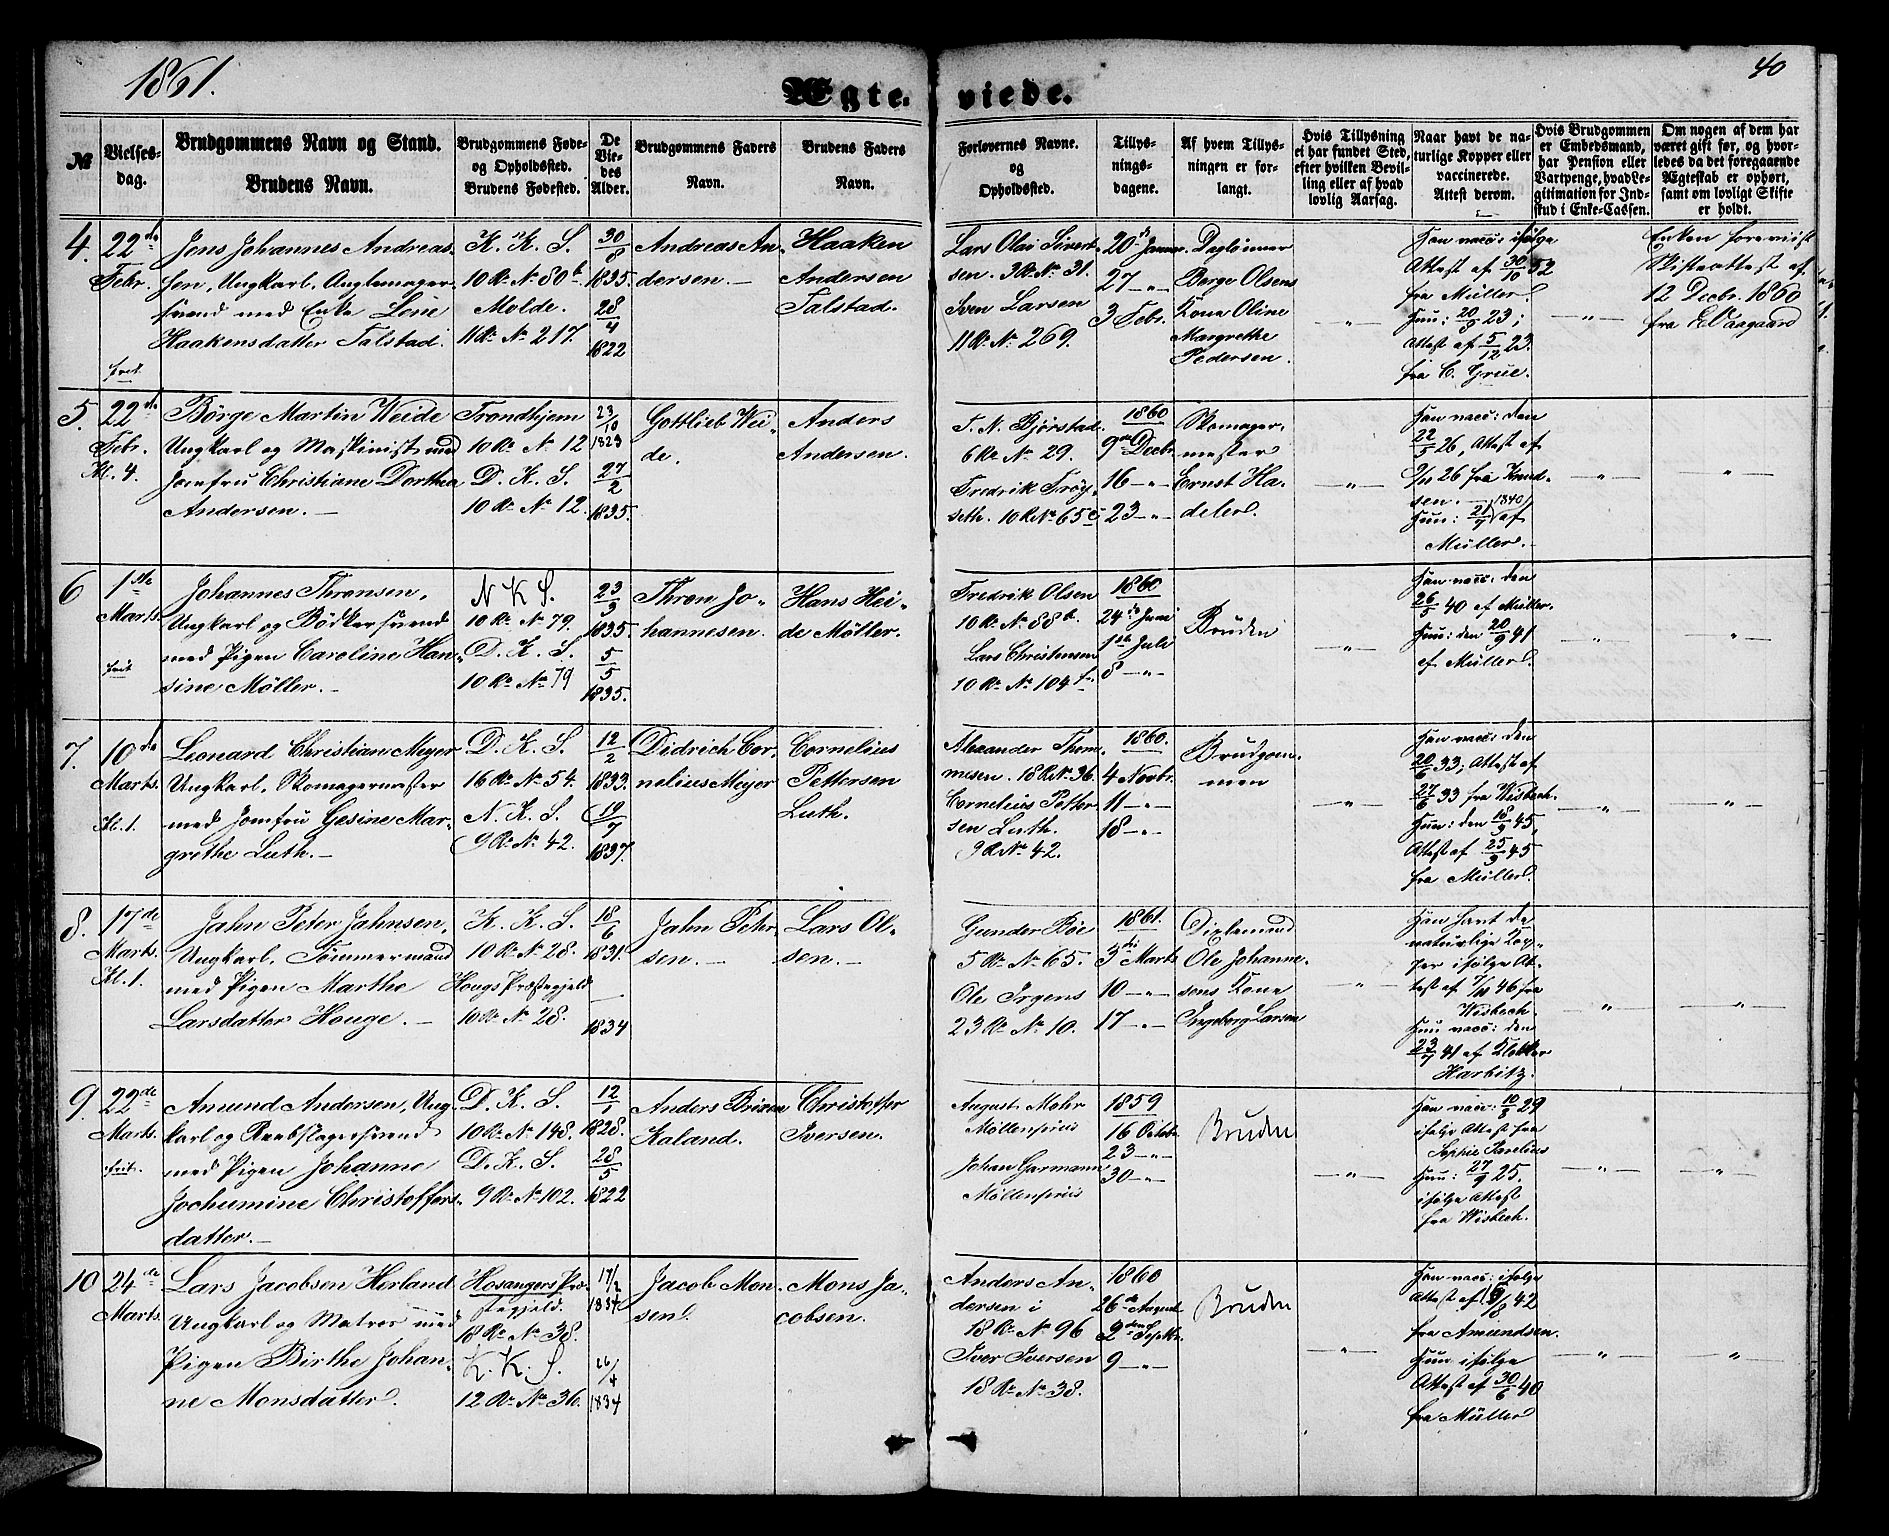 1861.
40
Ægte-viede.
№
Vielses-dag.
Brudgommens Navn og Stand.
Brudens Navn.
Brudgommens Føde- og Opholdssted.
Brudens Fødested.
De Viedes Alder.
Brudgommens Faders Navn.
Brudens Faders Navn.
Forlovernes Navne. og Opholdssted.
Tillysningsdagene.
Af hvem Tillysningen er forlangt.
Hvis Tillysning ei har fundet Sted, efter hvilken Bevilling eller af hvad lovlig Aarsag.
Naar havt de naturlige Kopper eller vaccinerede. Attest derom.
Hvis Brudgommen er Embedsmand, har Pension eller Vartpenge, hvad Legitimation for Indskud i Enke-Cassen.
Om nogen af dem har været gift før, og hvorledes da det foregaaende Ægteskab er ophørt, samt om lovligt Skifte er holdt.
4.
22de Febr.
frit
Jens Johannes Andreas-
sen, Ungkarl,
svend med Enke Lene
Haakensdatter Talstad.
K. K. S.
10 R. N. 80 b.
Molde.
11 R. N. 217.
30/8 1835.
28/4 1822
Andreas An-
dersen. —
Haaken
Andersen
Talstad.
Lars Olai Sivert-
sen. 3 R. N. 31.
Sven Larsen
11 R. N. 269.
20 Januar.
27 — „
3 Febr.
Dagleiner
Berge Olsens
Kone Oline
Margrethe
Pedersen.
„
Han vacc: ifølge
Attest af 30/10 52
fra Müller.
Hun: 20/9 23;
Attest af 5/12 23.
fra C. Grue.
„
Enken foreviist
Skifteattest af
12 Decbr. 1860
fra
5.
22de
Febr.
Kl. 4.
Børge Martin Weide
Ungkarl og Maskinist med
Jomfru Christiane Dorthea
Andersen. —
Trondhjem
10 R. N. 12
D. K. S.
10 R. N. 12.
23/10 1823
27/2 1835.
Gottlieb Wei-
de.
Anders
Andersen.
T. N. Bjørstad
6 R. N. 29.
Fredrik Trøy-
seth. 10 R. N. 65 c
1860
9de Decbr.
16 — „
23 — „
Skomager-
mester
Ernst Ha-
deler.
„
Han vacc: den
22/5 26, Attest af
26 fra Knud-
sen. —
Hun: 21/7 1840 af
Müller.
„
„
6
1ste
Marts.
frit
Johannes Thronsen,
Ungkarl og Bødkersvend
med Pigen Caroline Han-
sine Møller. —
N K S.
10 R. N. 79.
D. K. S.
10 R. N. 79
23/3 1835.
5/5 1835.
Thron Jo-
hannesen.
Hans Hei-
de Møller.
Fredrik Olsen
10 R. N. 88 b.
Lars Christensen
10 R. N. 104
1860
24de Juni
1ste Juli
8 — „
Bruden
„
Han vacc: den
26/5 40 af Müller.
Hun: den 20/9 41
af Müller.
„
„
7.
10de
Marts.
Kl. 1.
Leonard Christian Meyer
Ungkarl, Skomagermester
med Jomfru Gesine Mar-
grethe Luth. —
D. K. S.
16 R. N. 54.
N. K. S.
9 R. N. 42.
12/2 1833.
19/7 1837.
Didrich Cor-
nelius Meyer
Cornelius
Pettersen
Luth.
Alexander Thom-
mesen. 18 R. N. 36.
Cornelius Petter-
sen Luth.
9 R. N. 42.
1860.
4 Novbr.
11 — „
18 — „
Brudgom-
men
„
Han vacc: den
20/6 33; Attest af
27/6 33 fra Wisbech.
Hun: den 18/9 45,
Attest af 25/9 45
fra Müller.
„
„
8.
17de
Marts.
Kl. 1.
Jahn Peter Jahnsen,
Ungkarl, Tømmermand
med Pigen Marthe
Larsdatter Houge. —
K. K. S.
10 R. N. 28.
Hougs Præstegjeld
10 R. N. 28.
18/6 1831.
—
1834
Jahn Peter-
sen. —
Lars Ol-
sen. —
Gunder Bøe
5 R. N. 65.
Ole Irgens
23 R. N. 10.
1861.
3de Marts
10 — „
17 — „
Ole Johanne-
sens Kone
Ingeborg Larsen
„
Han havt de
naturlige Kop-
per ifølge At-
test af 46 fra
Wisbech.
Hun vacc: den
23/7 41 af Klokker
Harbitz.
„
„
9.
22de
Marts.
frit.
Amund Andersen, Ung-
karl og Reebslagersvend
med Pigen Johanne
Jochumine Christoffers-
datter. —
D. K. S.
10 R. N. 148.
D. K. S.
9 R. N. 102.
12/1 1828.
28/5 1822
Anders
Kaland.
Christoffer
Iversen.
August Mohr
Møllenpriis
Johan Garmann
Møllenpriis
1859
16 Octob.
23 — „
30 — „
Bruden
„
Han vacc: 10/8 29
ifølge Attest fra
Sophie
Hun: 27/9 25.
ifølge Attest
fra Wisbech.
„
„
10
24de
Marts.
Lars Jacobsen Herland
Ungkarl og Matros med
Pigen Birthe Johan-
ne Monsdatter.
Hosangers Præ-
stegjeld.
18 R. N. 38.
K. K. S.
12 R. N. 36.
17/2 1834
26/4 1834
Jacob Mon-
sen.
Mons Ja-
cobsen.
Anders An-
dersen i
18 R. N. 96
Iver Iversen
18 R. N. 38.
1860
26de August
2den Septbr.
9 — „
Bruden
„
Han vacc: ifølge
Attest af 42
fra Amundsen.
Hun ifølge
Attest af 30/6 40
fra Müller
„
„